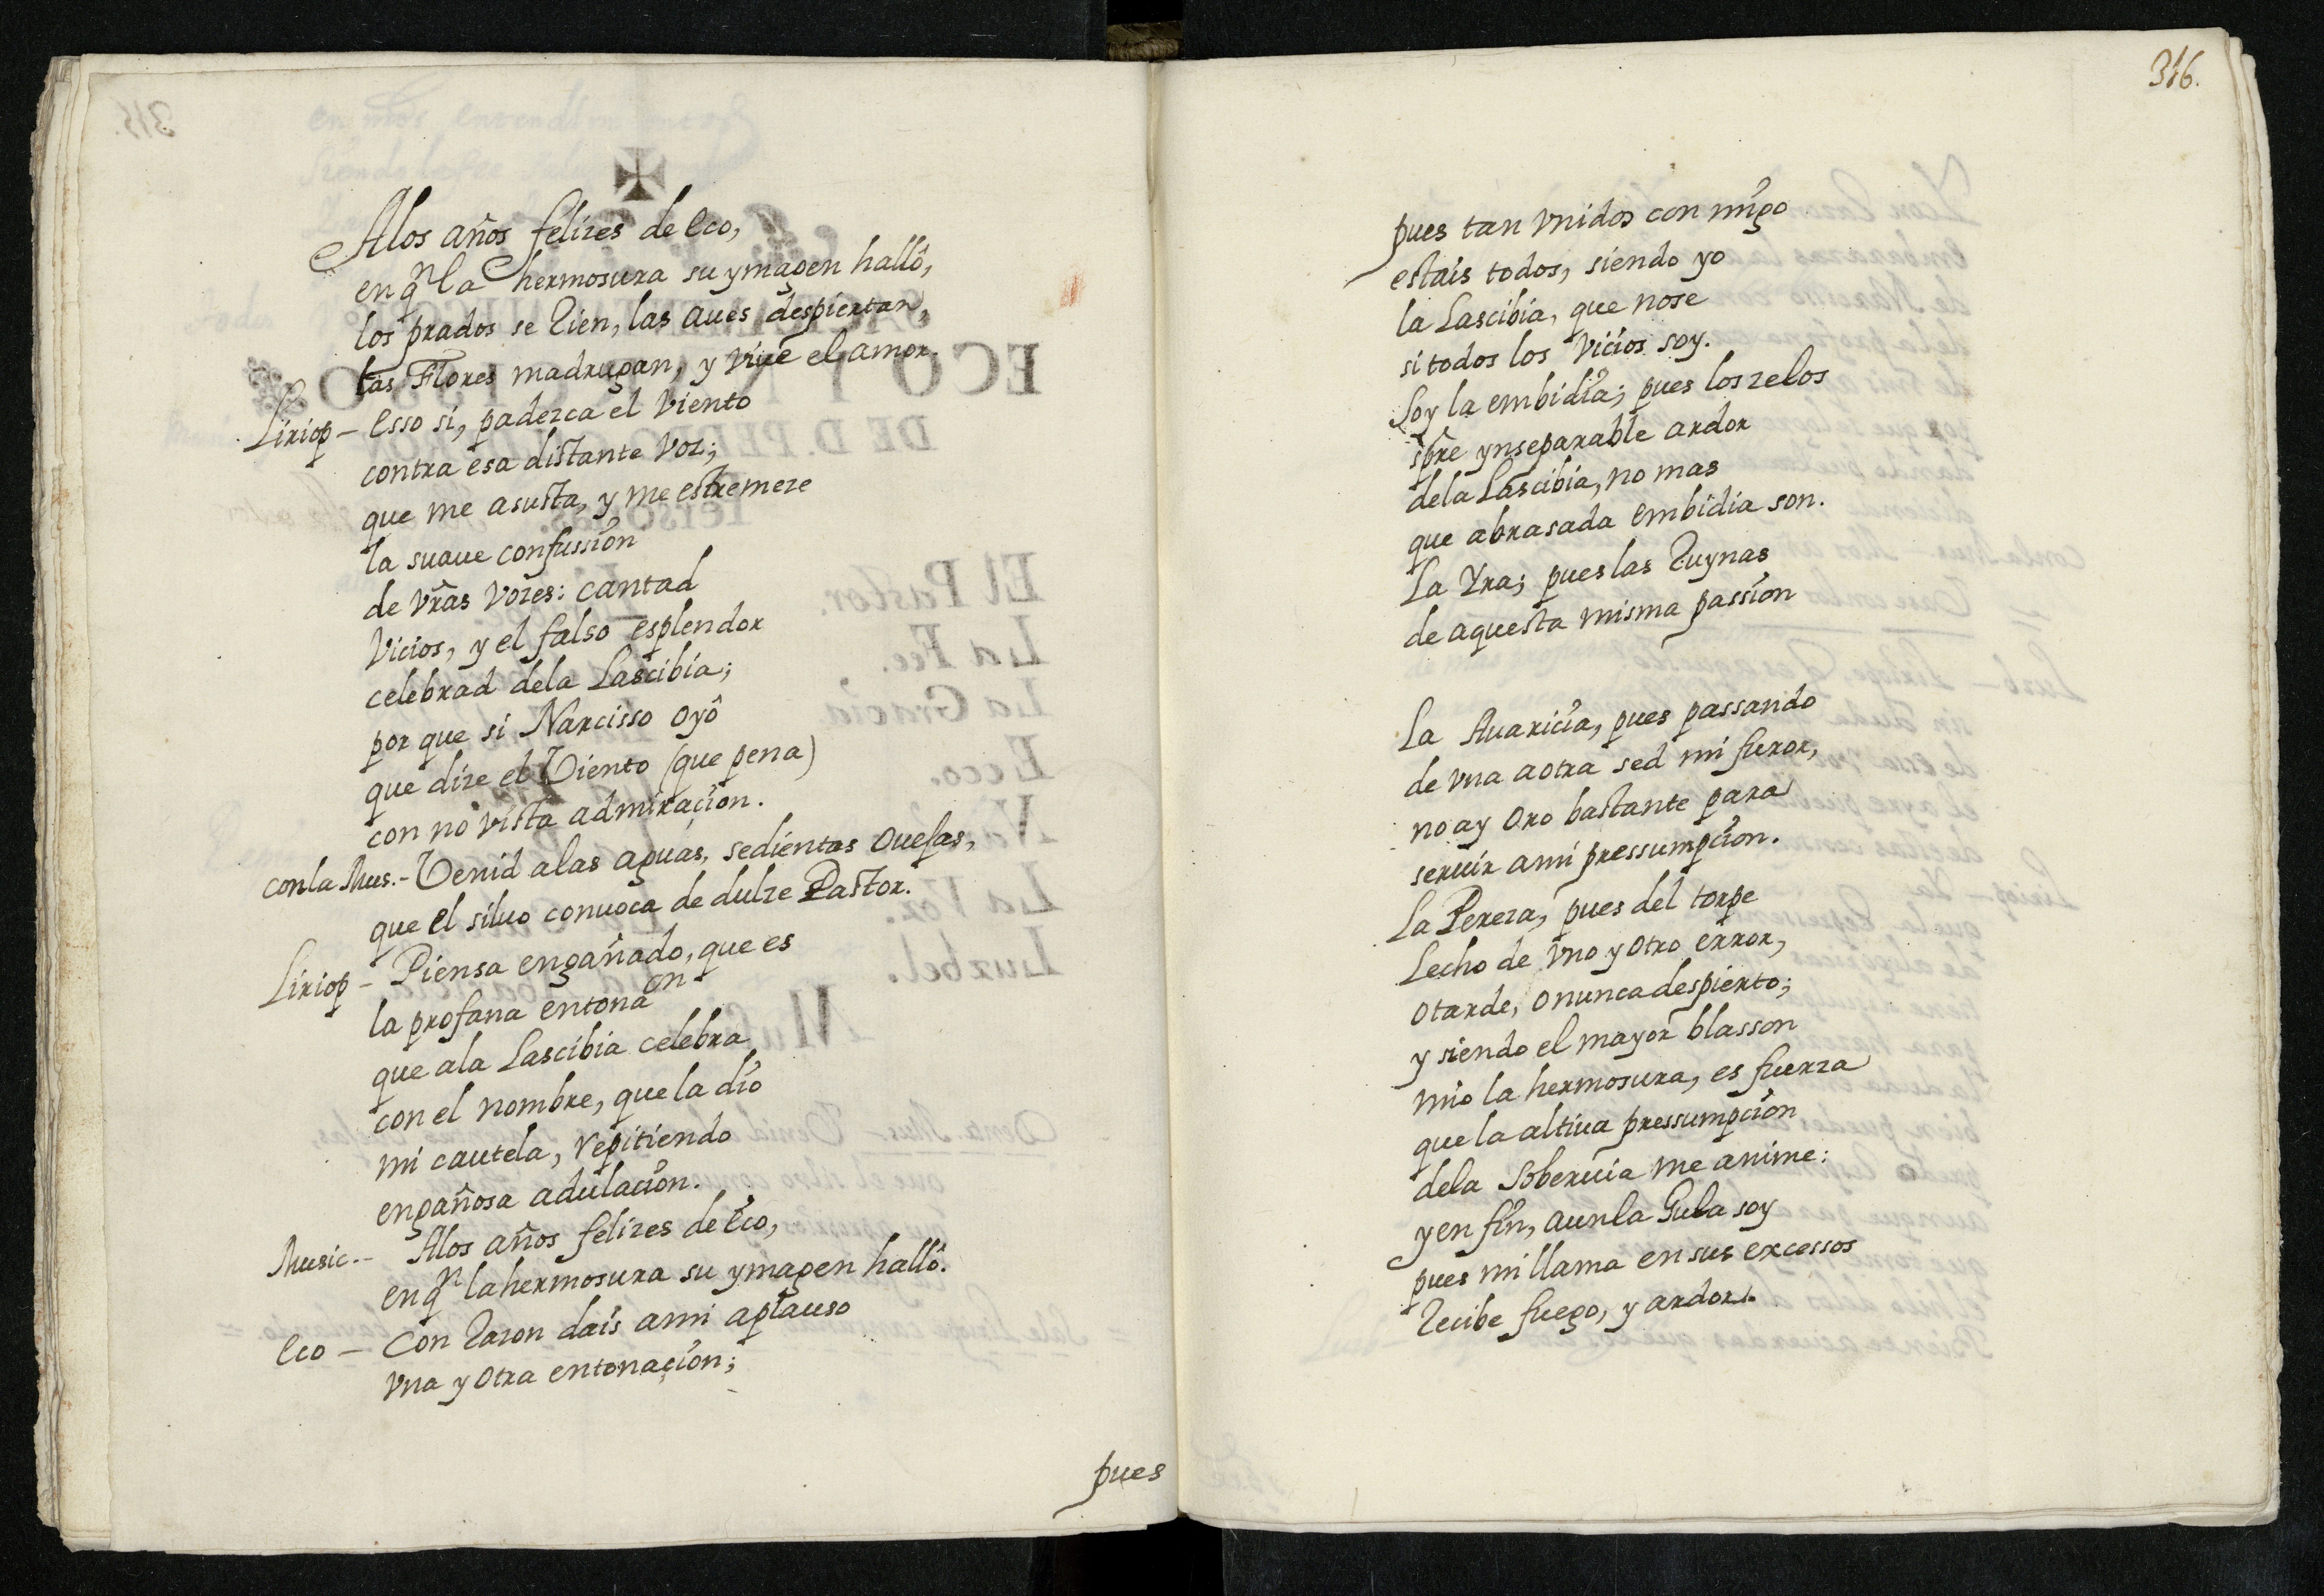 Alos años felizes de Eco,
en qn la hermosura su ymagen halló,
los prados se Rien, las aues despiertan,
las Flores madrugan, y viue el amor.
Liriop – Esso si, padezca el viento
contra esa distante voz;
que me asusta, y me estremeze
la suaue confussion
de vr̃as vozes: cantad
Vicios, y el falso esplendor
celebrad dela Lascibia;
por que si Narcisso oyó
que dize el Viento (que pena)
con no vista admiracion.
con la Mus. – Venid a las aguas, sedientas ouejas,
que el siluo conuoca de dulze Pastor.
Liriop – Piensa engañado, que es
la profana entonaon
que ala Lascibia celebra
con el nombre, que la dio
mi cautela, repitiendo
engañosa adulacion.
Music. – Alos años felizes de Eco,
en qn la hermosura su ymagen halló.
Eco – Con Razon dais a mi aplauso
vna y otra entonacion;
pues
316.
pues tan vnidos con migo
estais todos, siendo yo
la Lascibia, que nose
si todos los vicios soy.
Soy la embidia; pues los zelos
sp̃re ynseparable ardor
dela Lascibia, no mas
que abrasada embidia son.
La Yra; pues las Ruynas
de aquesta misma passion
La Auaricia, pues passando
de vna a otra sed mi furor,
no ay oro bastante para
seruir a mi pressumpcion.
La Pereza, pues del torpe
Lecho de vno y otro error,
o tarde, o nunca despierto;
y siendo el mayor blasson
mio la hermosura, es fuerza
que la altiua pressumpcion
dela Soberuia me anime:
y en fin, aun la Gula soy
pues mi llama en sus excessos
Recibe fuego, y ardor.